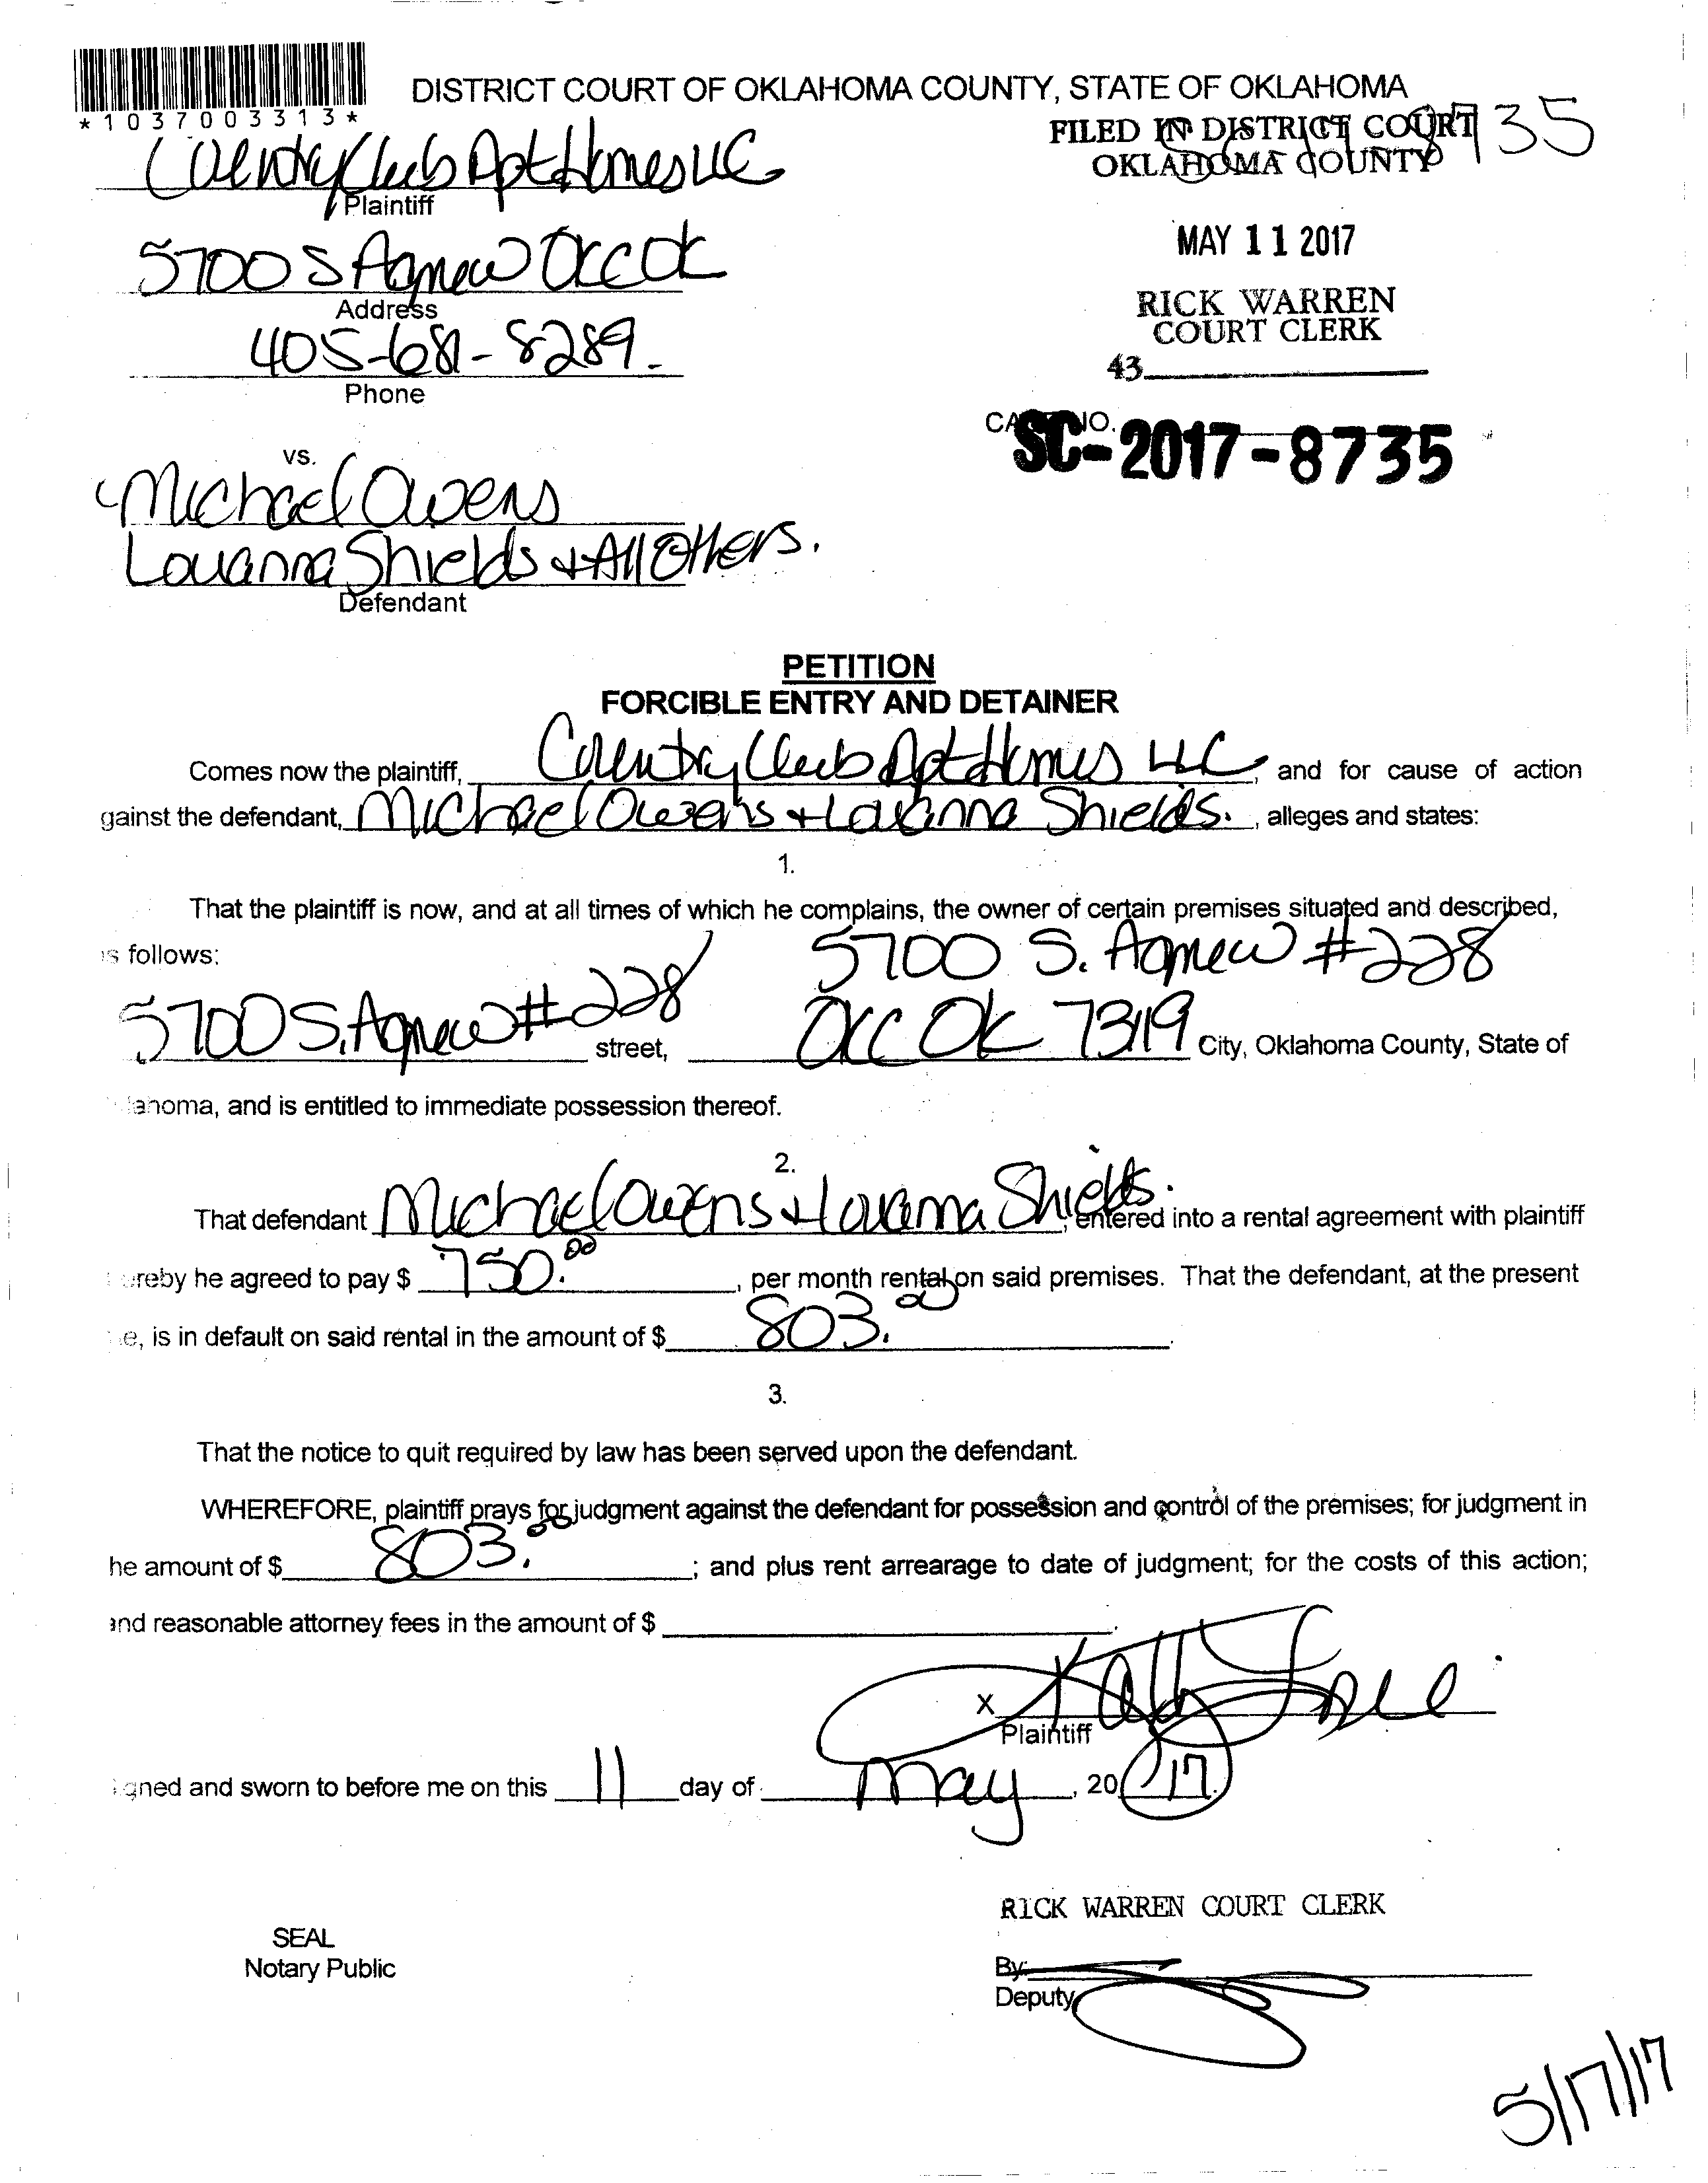 *1037003313*
DISTRICT COURT OF OKLAHOMA COUNTY, STATE OF OKLAHOMA
FILED IN DISTRICT COURT
OKLAHOMA COUNTY
8735
Country Club Apt Homes LLC
Plaintiff
5700 S Agnew OKC OK
Address
405-681-8289
Phone
MAY 11 2017
RICK WARREN
COURT CLERK
43
CA NO.
SC-2017-8735
vs.
Michael Owens
Louanna Shields + All Others.
Defendant
PETITION
FORCIBLE ENTRY AND DETAINER
Comes now the plaintiff, Country Club Apt Homes LLC, and for cause of action
gainst the defendant, Michael Owens + Louanna Shields. , alleges and states:
1.
That the plaintiff is now, and at all times of which he complains, the owner of certain premises situated and described,
s follows:
5700 S. Agnew #228
5700 S. Agnew #228 street, OKC OK 73119 City, Oklahoma County, State of
lahoma, and is entitled to immediate possession thereof.
2.
That defendant Michael Owens + Louanna Shields. , entered into a rental agreement with plaintiff
ereby he agreed to pay $ 750.00 , per month rental on said premises. That the defendant, at the present
e, is in default on said rental in the amount of $ 803.00 .
3.
That the notice to quit required by law has been served upon the defendant.
WHEREFORE, plaintiff prays for judgment against the defendant for possession and control of the premises; for judgment in
he amount of $ 803.00 ; and plus rent arrearage to date of judgment; for the costs of this action;
and reasonable attorney fees in the amount of $ .
X
Plaintiff
igned and sworn to before me on this 11 day of May , 20 17.
RICK WARREN COURT CLERK
SEAL
Notary Public
By:
Deputy
5/17/17